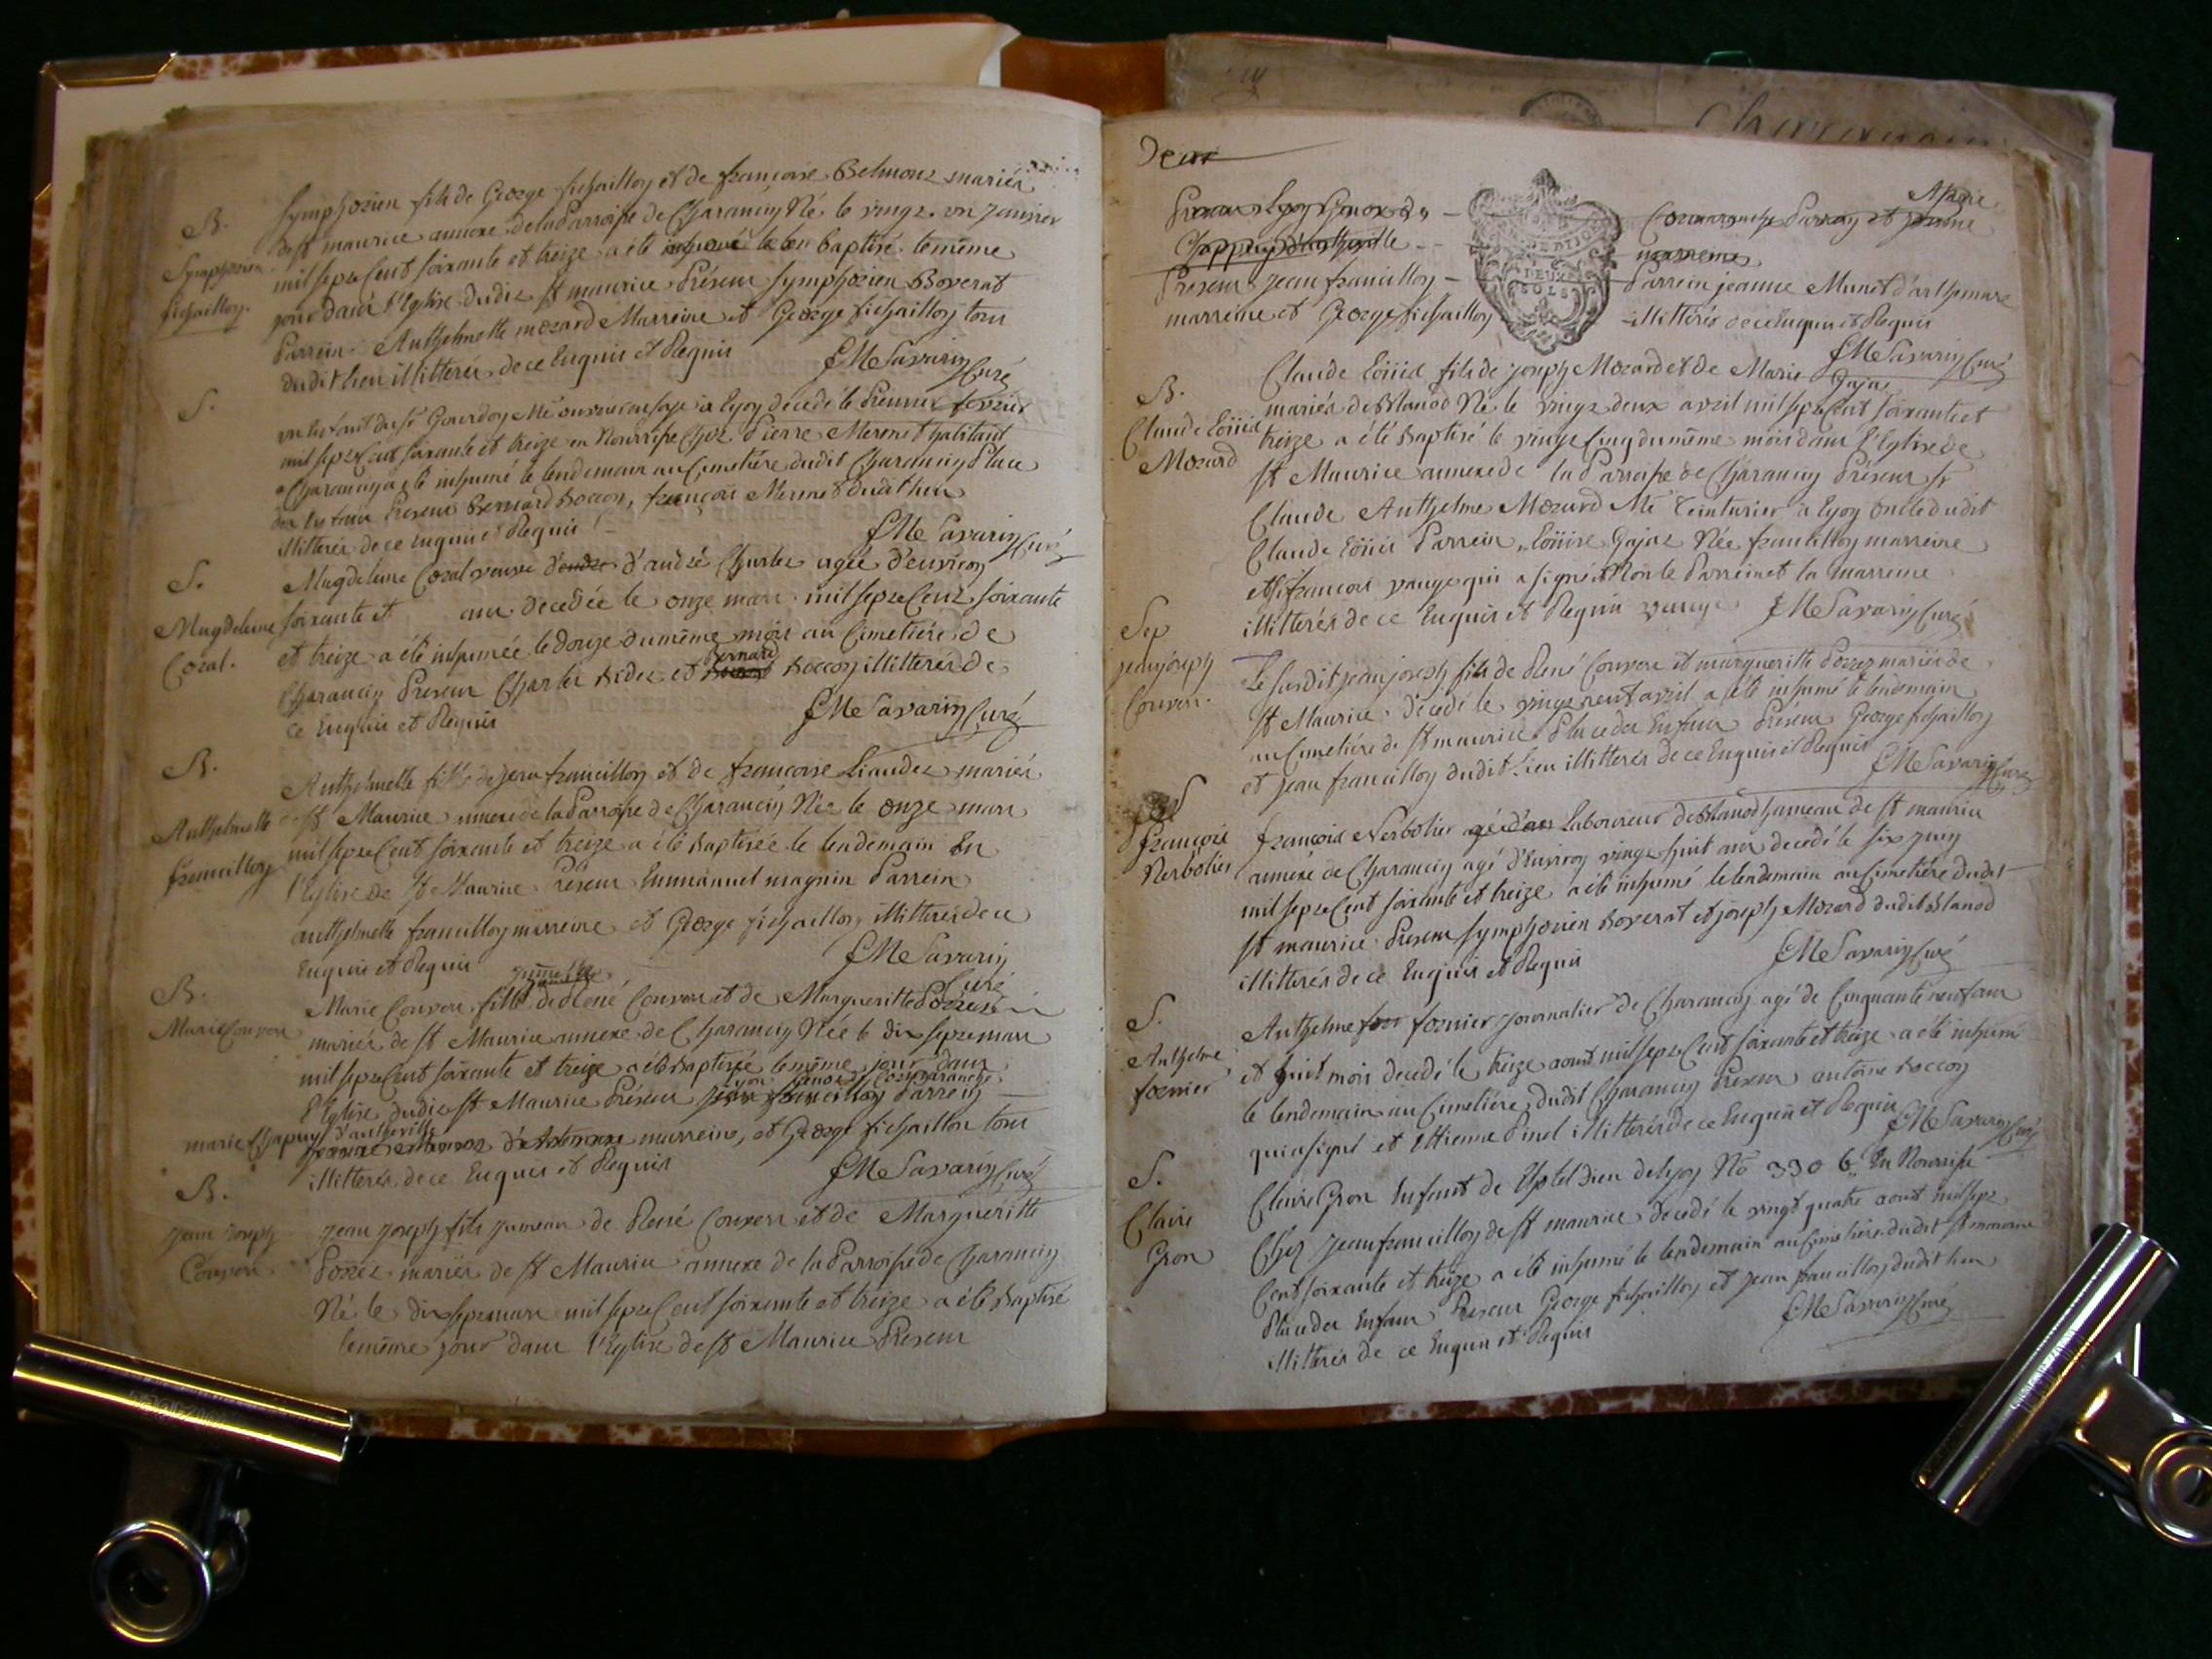 B.
Symphorien
fichaillon.
Symphorien fils de George fichaillon et de françoise Belmont mariés
de st maurice annexe de la Parroisse de Charancin Né le vingt un janvier
mil sept Cent soixante et treize a été baptisé le même
jour dans l'Eglise dudit st maurice Présens Symphorien Boverat
Parrein Anthelmette mozard Marreine et George fichaillon tous
dudit lieu illitterés de ce Enquis et Requis
JMe Savarin Curé
S.
un Enfant du sr Gourdon Me a lyon decedé le Premier fevrier
mil sept Cent soixante et treize en Nourrisse Chez Pierre Mermet habitant
a Charancin a été inhumé le lendemain au Cimetière dudit Charancin Place
des Enfans Presens Bernard Boccon, françois Mermet dudit lieu
illitterés de ce enquis et Requis
JMe Savarin Curé
S.
Magdeleine
Coral.
Magdeleine Coral veuve d'andré Charles agée d'environ
soixante et ans decedée le onze mars mil sept Cent soixante
et treize a été inhumée le Douze du même mois au Cimetiére de
Bernard
Charancin Presens Charles Bidet et Boccon illitterés de
ce Enquis et Requis
JMe Savarin Curé
B.
Anthelmette
francillon
Anthelmette fille de Jean francillon et de françoise Liaudet mariés
st Maurice annexe de la Parroisse de Charancin Née le onze mars
mil sept Cent soixante et treize a été Baptisée le lendemain En
l'Eglise de St Maurice Présens Emmanuel magnin Parrein
anthelmette francillon marreine et George fichaillon illitterés de ce
Enquis et Requis
JMe Savarin
Curé
B.
Marie Couvon
jumelle
Marie Couvon fille de René Couvon et de Margueritte
mariés de st Maurice annexe de Charancin Née le dix sept mars
mil sept Cent soixante et treize a été Baptisée le même jour dans
l'Eglise dudit st Maurice Présens Parrein
marie Chapuy d'antheville marreine, et George fichaillon tous
illitterés de ce Enquis et Requis
JMe Savarin Curé
B.
jean joseph
Couvon
jean joseph fils jumeau de René Couvon et de Margueritte
mariés de st Maurice annexe de la Parroisse de Charancin
Né le dix sept mars mil sept Cent soixante et treize a été Baptisé
le même jour dans l'Eglise de st Maurice Presens
Deux
DEUX
SOLS
Marie
Parrein et
marreine
Presens jean francillon Parrein jeanne Munet d'arthemare
marreine et George fichaillon illitterés de ce Enquis et Requis
JMe Savarin Curé
B.
Claude Loüis
Mozard
Claude Loüis fils de joseph Mozard et de Marie Gajat
mariés de Blanod Né le vingt deux avril mil sept Cent soixante et
treize a été Baptisé le vingt Cinq du même mois dans l'Eglise de
st Maurice annexe de la Parroisse de Charancin Présens sr
Claude Anthelme Mozard Me Teinturier a lyon oncle dudit
Claude Loüis Parrein, Loüise Gajat Née francillon marreine
et françois vauge qui a signé Non le Parrein et la marreine
illitterés de ce Enquis et Requis vauge JMe Savarin Curé
Sep
jean joseph
Couvon.
Le susdit jean joseph fils de René Couvon et margueritte mariés de
st Maurice décedé le vingt neuf avril a été inhumé le lendemain
au Cimetiére de st maurice Place des Enfans Présens George fichaillon
et jean francillon dudit Lieu illitterés de ce Enquis et Requis
JMe Savarin Curé
S
françois
Nerbolier
françois Nerbolier Laboureur de Blanod hameau de st maurice
annexe de Charancin agé d'Environ vingt huit ans decedé le six juin
mil sept Cent soixante et treize a été inhumé le lendemain au Cimetière dudit
st maurice Presens Symphorien Boverat et joseph Mozard dudit Blanod
illitterés de ce Enquis et Requis
JMe Savarin Curé
S.
Anthelme
fornier
Anthelme fornier journalier de Charancin agé de Cinquante neuf ans
et huit mois decedé le treize aoust mil sept Cent soixante et treize a été inhumé
le lendemain au Cimetiére dudit Charancin Presens antoine Boccon
qui a signé et Ettienne Pinel illitterés de ce Enquis et Requis
JMe Savarin Curé
S.
Claire
Gron
Claire Gron Enfant de l'hotel Dieu de lyon No 3306 En Nourrisse
Chez jean francillon de st maurice decedé le vingt quatre aoust mil sept
Cent soixante et treize a été inhumé le lendemain au Cimetière dudit st maurice
Place des Enfans Presens George fichaillon et jean francillon dudit lieu
illitterés de ce Enquis et Requis
JMe Savarin Curé